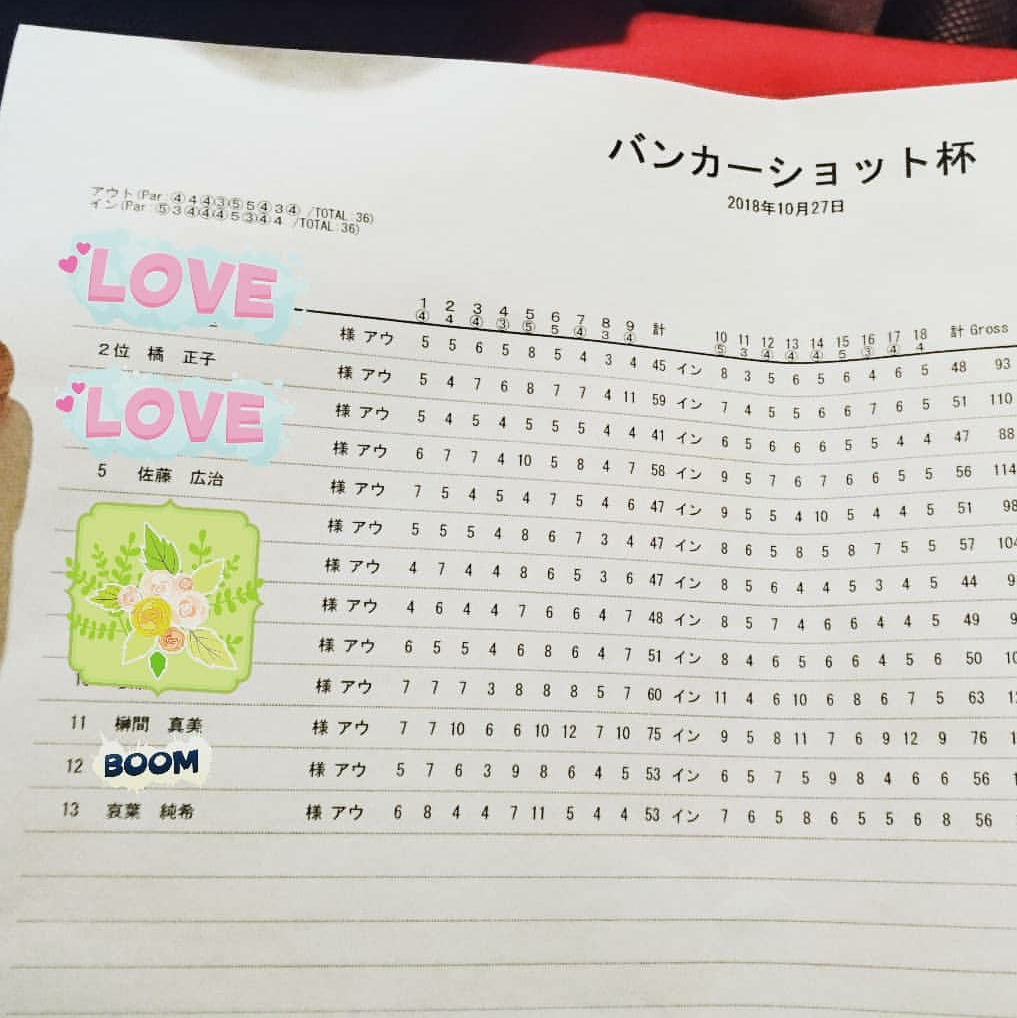 バンカーショット杯
2018年10月27日
アウト(Par:④4④③⑤5④3④ /TOTAL:36)
イン(Par:⑤3④④④5③④4 /TOTAL:36)
LOVE
1 2 3 4 5 6 7 8 9 計 10 11 12 13 14 15 16 17 18 計 Gross
④ 4 ④ ③ ⑤ 5 ④ 3 ④ ⑤ 3 ④ ④ ④ 5 ③ ④ 4
様 アウ 5 5 6 5 8 5 4 3 4 45 イン 8 3 5 6 5 6 4 6 5 48 93
2位 橘 正子 様 アウ 5 4 7 6 8 7 7 4 11 59 イン 7 4 5 5 6 6 7 6 5 51 110
LOVE
様 アウ 5 4 5 4 5 5 5 4 4 41 イン 6 5 6 6 6 5 5 4 4 47 88
様 アウ 6 7 7 4 10 5 8 4 7 58 イン 9 5 7 6 7 6 6 5 5 56 114
5 佐藤 広治 様 アウ 7 5 4 5 4 7 5 4 6 47 イン 9 5 5 4 10 5 4 4 5 51 98
様 アウ 5 5 5 4 8 6 7 3 4 47 イン 8 6 5 8 5 8 7 5 5 57 104
様 アウ 4 7 4 4 8 6 5 3 6 47 イン 8 5 6 4 4 5 3 4 5 44 9
様 アウ 4 6 4 4 7 6 6 4 7 48 イン 8 5 7 4 6 6 4 4 5 49 9
様 アウ 6 5 5 4 6 8 6 4 7 51 イン 8 4 6 5 6 6 4 5 6 50 10
様 アウ 7 7 7 3 8 8 8 5 7 60 イン 11 4 6 10 6 8 6 7 5 63 1
11 榊間 真美 様 アウ 7 7 10 6 6 10 12 7 10 75 イン 9 5 8 11 7 6 9 12 9 76 1
12 BOOM 様 アウ 5 7 6 3 9 8 6 4 5 53 イン 6 5 7 5 9 8 4 6 6 56
13 哀葉 純希 様 アウ 6 8 4 4 7 11 5 4 4 53 イン 7 6 5 8 6 5 5 6 8 56